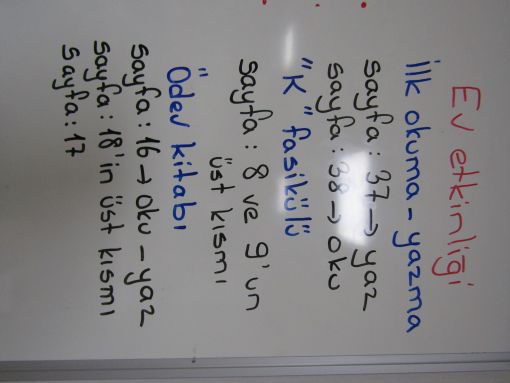 Ev etkinliği
İlk okuma - yazma
sayfa : 37 → yaz
sayfa : 38 → oku
"K" fasikülü
sayfa : 8 ve 9'un
üst kısmı
Ödev kitabı
sayfa : 16 → oku - yaz
sayfa : 18'in üst kısmı
sayfa : 17